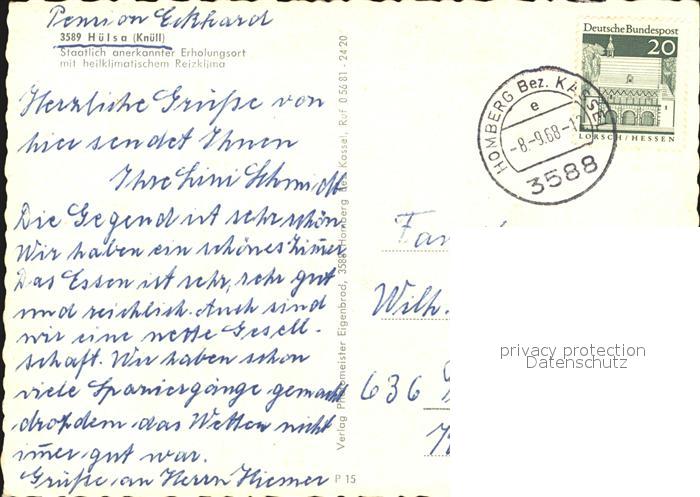 Pension Eckhard
3589 Hülsa (Knüll)
Staatlich anerkannter Erholungsort
mit heilklimatischem Reizklima
Herzliche Grüße von
hier sendet Ihnen
Ihre Lini Schmidt
Die Gegend ist sehr schön
Wir haben ein schönes Zimmer
Das Essen ist sehr, sehr gut
und reichlich. Auch sind
wir eine nette Gesell-
schaft. Wir haben schon
viele Spaziergänge gemacht
dropdem das Wetter nicht
immer gut war.
Grüße an Herrn Hiemer
Verlag Photomeister Eigenbrod, 3588 Homberg Bez. Kassel, Ruf 0 56 81 - 24 20
P 15
Deutsche Bundespost
20
LORSCH/HESSEN
HOMBERG Bez. KASSEL
e
-8.-9.68-1
3588
Fa
Wilh.
636
privacy protection
Datenschutz